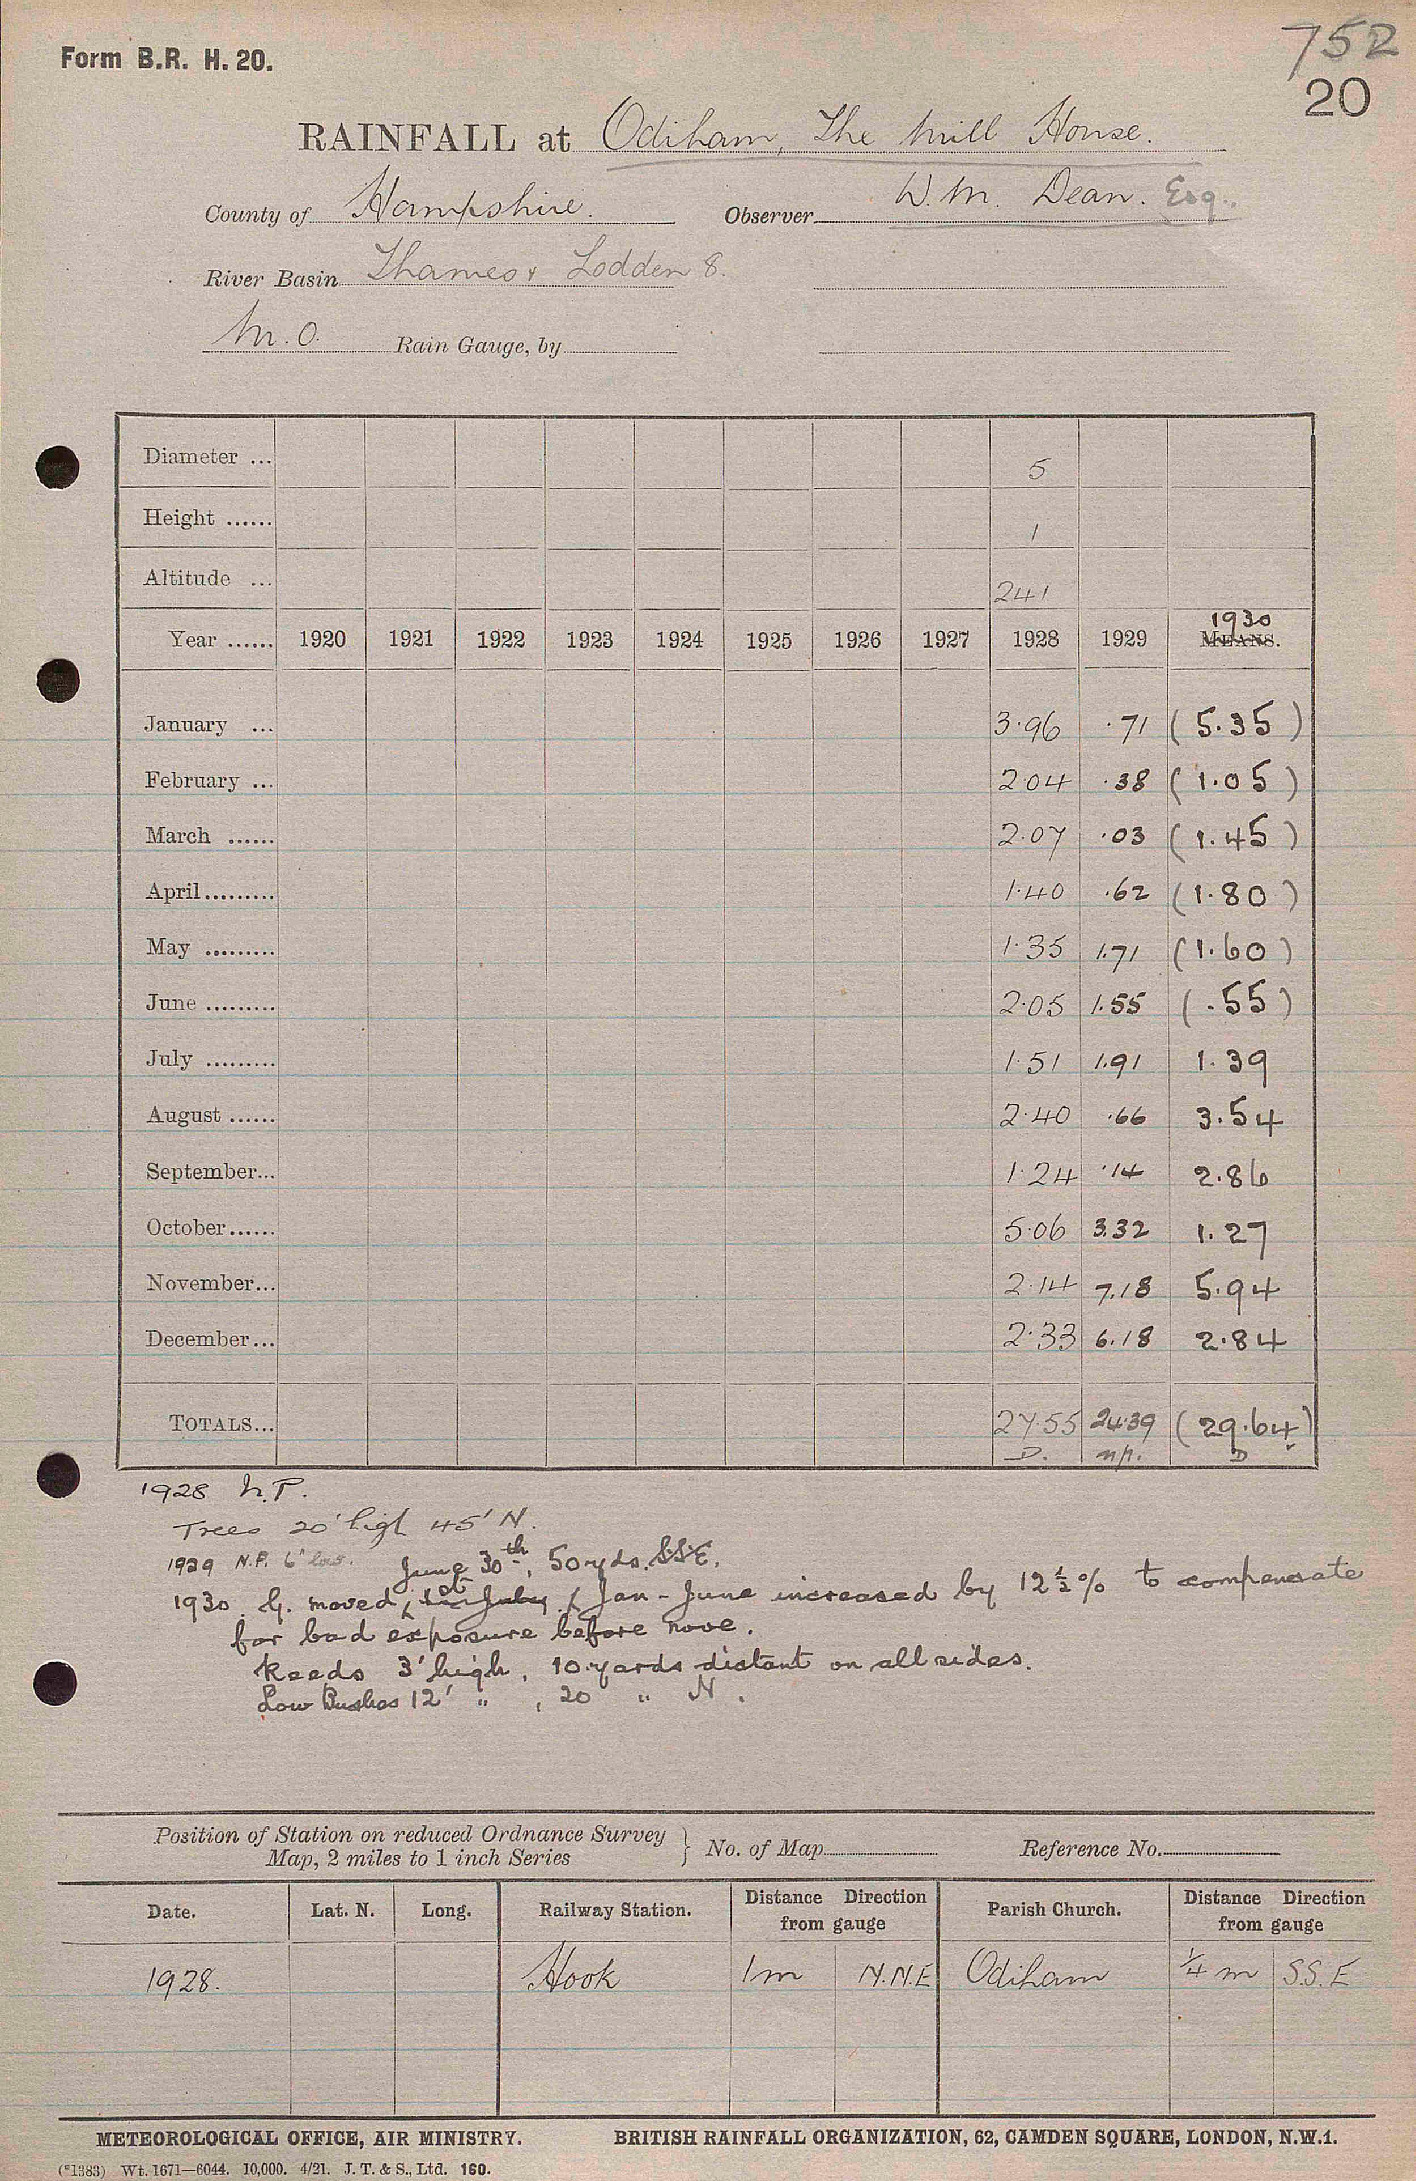 752
Form B.R. H. 20.
20
RAINFALL at Odiham, The Mill House.
County of Hampshire. Observer W. M. Dean. Esq.
River Basin Thames & Lodden 8.
M.O. Rain Gauge, by
Diameter ... 5
Height ...... 1
Altitude ... 241
Year ...... 1920 1921 1922 1923 1924 1925 1926 1927 1928 1929 1930 MEANS.
January ... 3.96 .71 (5.35)
February ... 2.04 .38 (1.05)
March ...... 2.07 .03 (1.45)
April......... 1.40 .62 (1.80)
May ......... 1.35 1.71 (1.60)
June ......... 2.05 1.55 (.55)
July ......... 1.51 1.91 1.39
August ...... 2.40 .66 3.54
September... 1.24 .14 2.86
October...... 5.06 3.32 1.27
November... 2.14 7.18 5.94
December... 2.33 6.18 2.84
TOTALS... 27.55 24.39 (29.64)
D. n/p. D
1928 N.P.
Trees 20' high 45' N.
1929 N.P. 6' low.
June 30th, 50 yds. SSE.
1930 G. moved 1st July. Jan - June increased by 12 ½ % to compensate
for bad exposure before move.
Reeds 3' high, 10 yards distant on all sides.
Low Bushes 12' " , 20 " N.
Position of Station on reduced Ordnance Survey
Map, 2 miles to 1 inch Series } No. of Map Reference No.
Date. Lat. N. Long. Railway Station. Distance Direction from gauge Parish Church. Distance Direction from gauge
1928. Hook 1 m N.N.E Odiham ¼ m S.S.E
METEOROLOGICAL OFFICE, AIR MINISTRY. BRITISH RAINFALL ORGANIZATION, 62, CAMDEN SQUARE, LONDON, N.W.1.
(*1383) Wt. 1671—6044. 10,000. 4/21. J. T. & S., Ltd. 160.